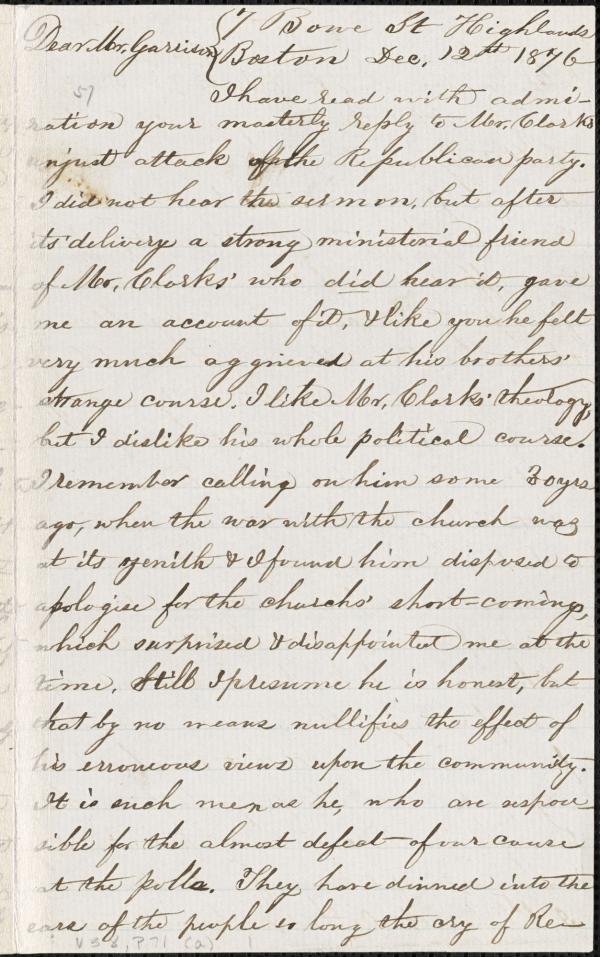 7 Bowe St Highlands
Dear Mr. Garrison Boston Dec. 12th 1876
57
I have read with admi-
ration your masterly reply to Mr. Clarks
unjust attack of the Republican party.
I did not hear the sermon, but after
its delivery a strong ministerial friend
of Mr. Clarks' who did hear it, gave
me an account of it, & like you he felt
very much aggrieved at his brothers'
strange course. I like Mr. Clarks' theology,
but I dislike his whole political course.
I remember calling on him some 30 yrs
ago, when the war with the church was
at its zenith & I found him disposed to
apologise for the churchs' short-comings,
which surprised & disappointed me at the
time. Still I presume he is honest, but
that by no means nullifies the effect of
his erroneous views upon the community.
It is such men as he, who are respon-
sible for the almost defeat of our cause
at the polls. They have dinned into the
ears of the people so long the cry of Re-
V 38, P 71 (a) 1